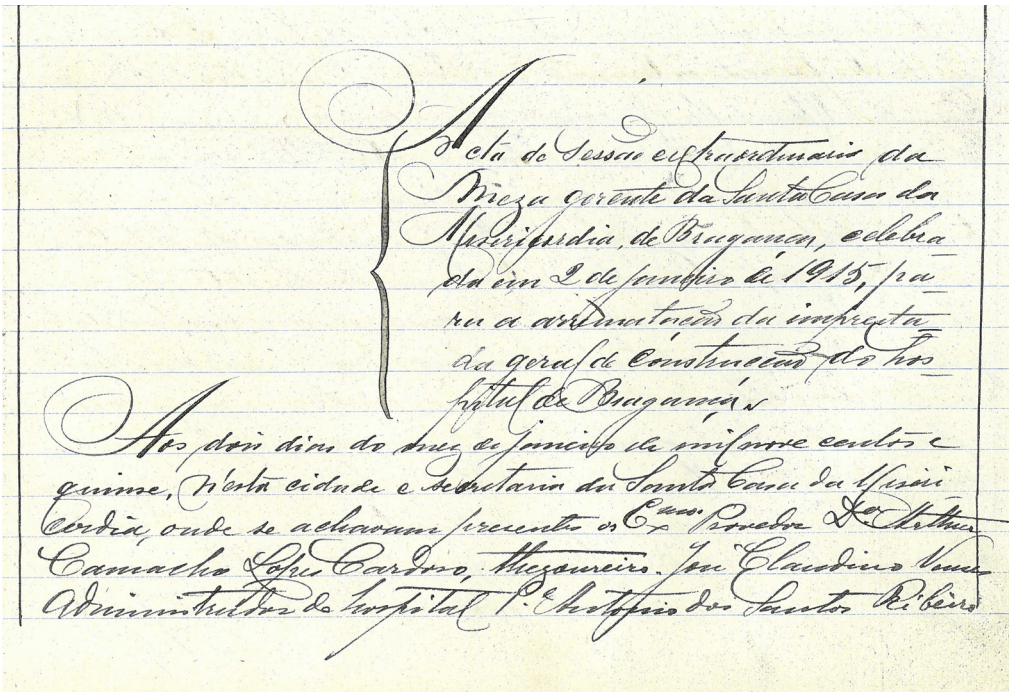 Acta de Sessão extraordinaria da
Meza gerente da Santa Casa da
Misericordia, de Bragança, celebra
da em 2 de janeiro de 1915, pa=
ra a arrematação da impreita=
da geral de construcção do hos=
pital de Bragança.
Aos dois dias do mez de janeiro de mil nove centos e
quinse, n'esta cidade e secretaria da Santa Casa da Miseri
cordia, onde se achavam presentes os Exmos Provedor Dor Arthur
Camacho Lopes Cardoso, Thezoureiro José Claudino Nunes
Administrador do hospital Pe Antonio dos Santos Ribeiro